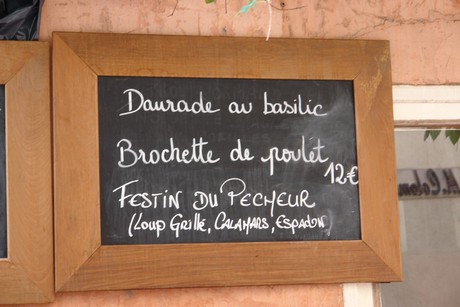 Daurade au basilic
Brochette de poulet
12€
Festin du Pecheur
(Loup Grillé, Calamars, Espadon)